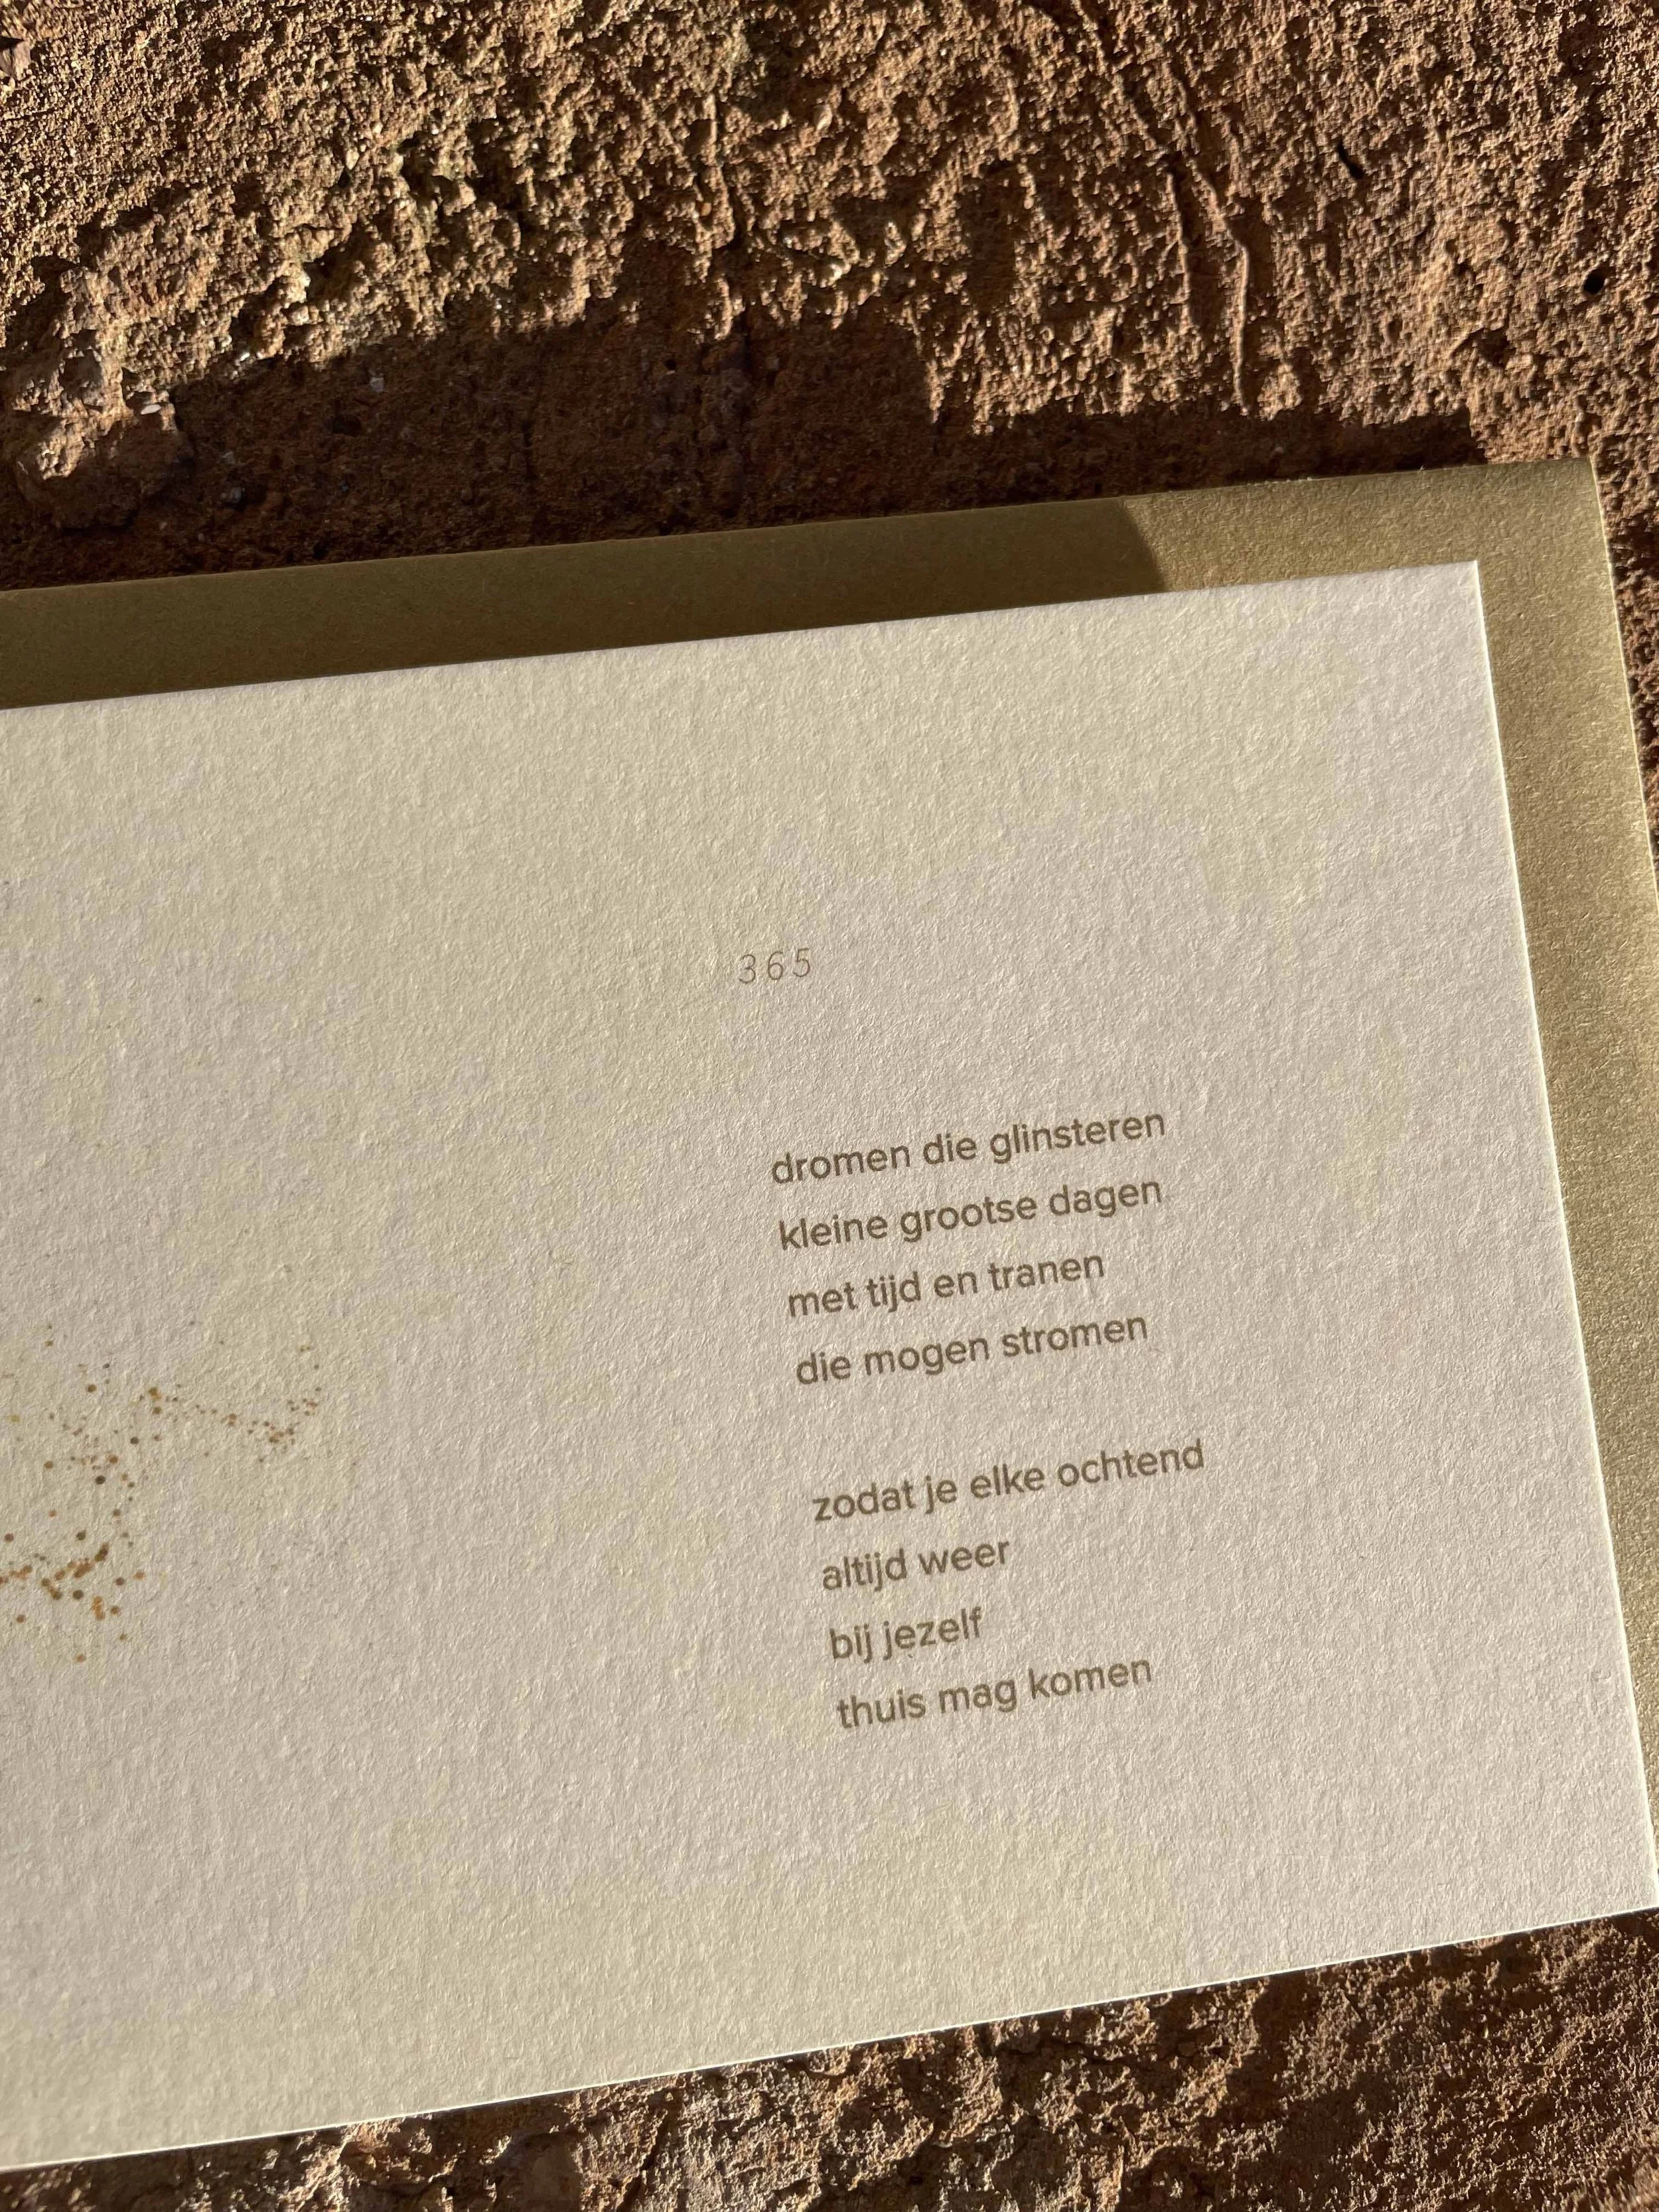 365
dromen die glinsteren
kleine grootse dagen
met tijd en tranen
die mogen stromen
zodat je elke ochtend
altijd weer
bij jezelf
thuis mag komen